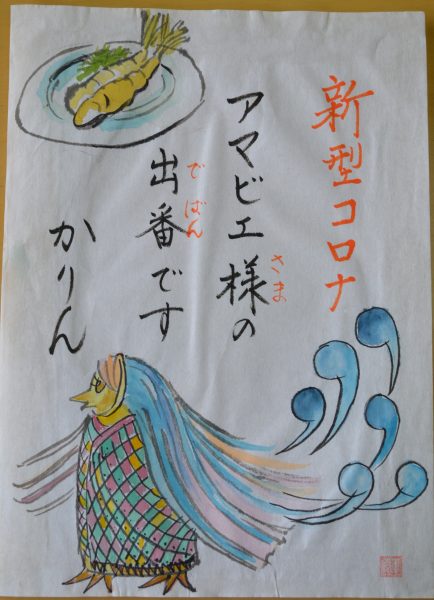 新型コロナ
アマビエ様の
さま
出番です
でばん
かりん